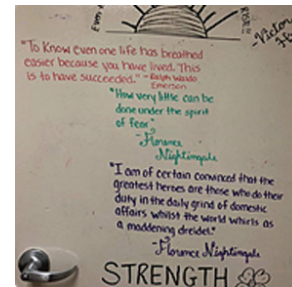 "To Know even one life has breathed
easier because you have lived. This
is to have succeeded." - Ralph Waldo
Emerson
"How very little can be
done under the spirit
of fear"
- Florence
Nightingale
"I am of certain convinced that the
greatest heroes are those who do their
duty in the daily grind of domestic
affairs whilst the world whirls as
a maddening dreidel."
- Florence Nightingale
STRENGTH